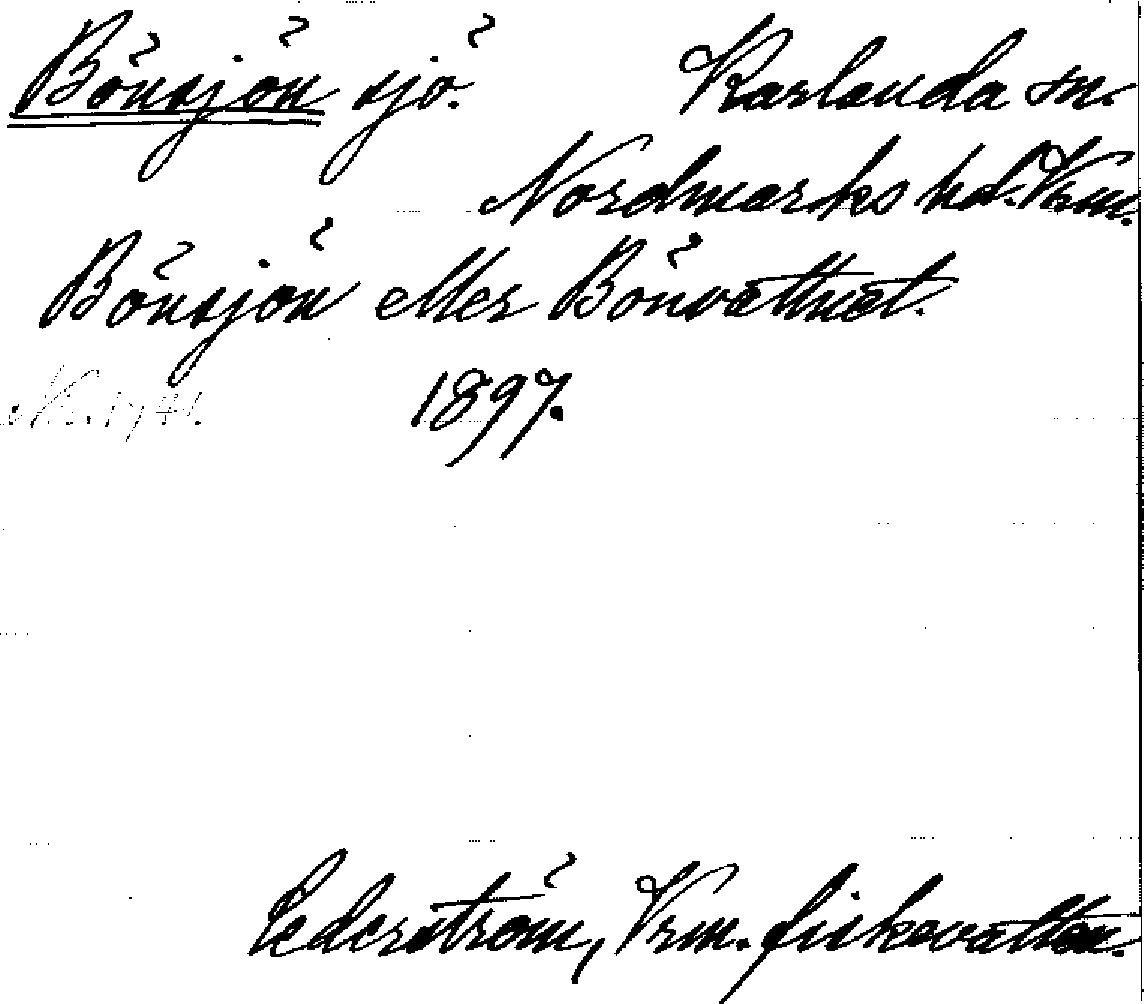 Bönsjön sjö. Karlanda sn.
Nordmarks hd. Vrm.
Bönsjön eller Bönvattnet.
1897.
Cederström, Vrm. fiskevatten.